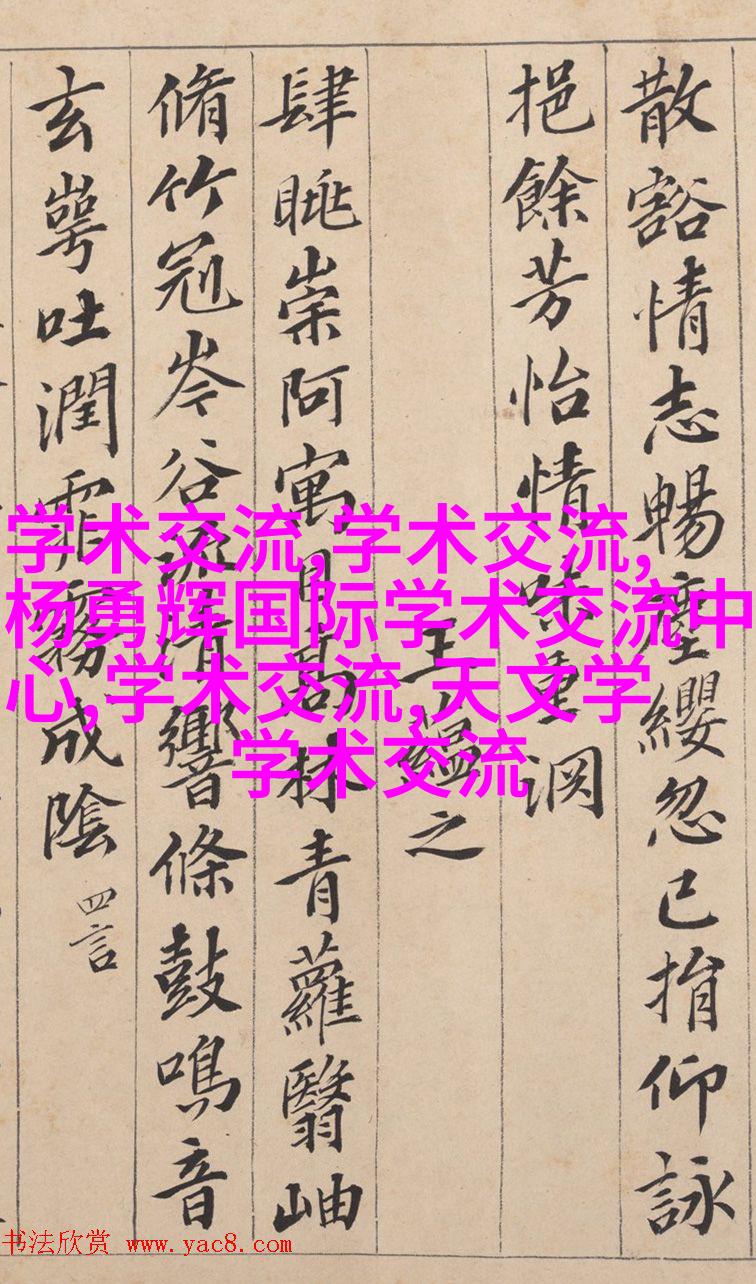 散豁情志暢塵纓忽已捐仰詠
挹餘芳怡情味重渊
王蘊之
肆眺崇阿寓目高林青蘿翳岫
脩竹冠岑谷流清響條鼓鳴音
玄崿吐潤霏霧成陰 四言
学术交流,学术交流,
杨勇辉国际学术交流中
心,学术交流,天文学
学术交流
书法欣赏 www.yac8.com